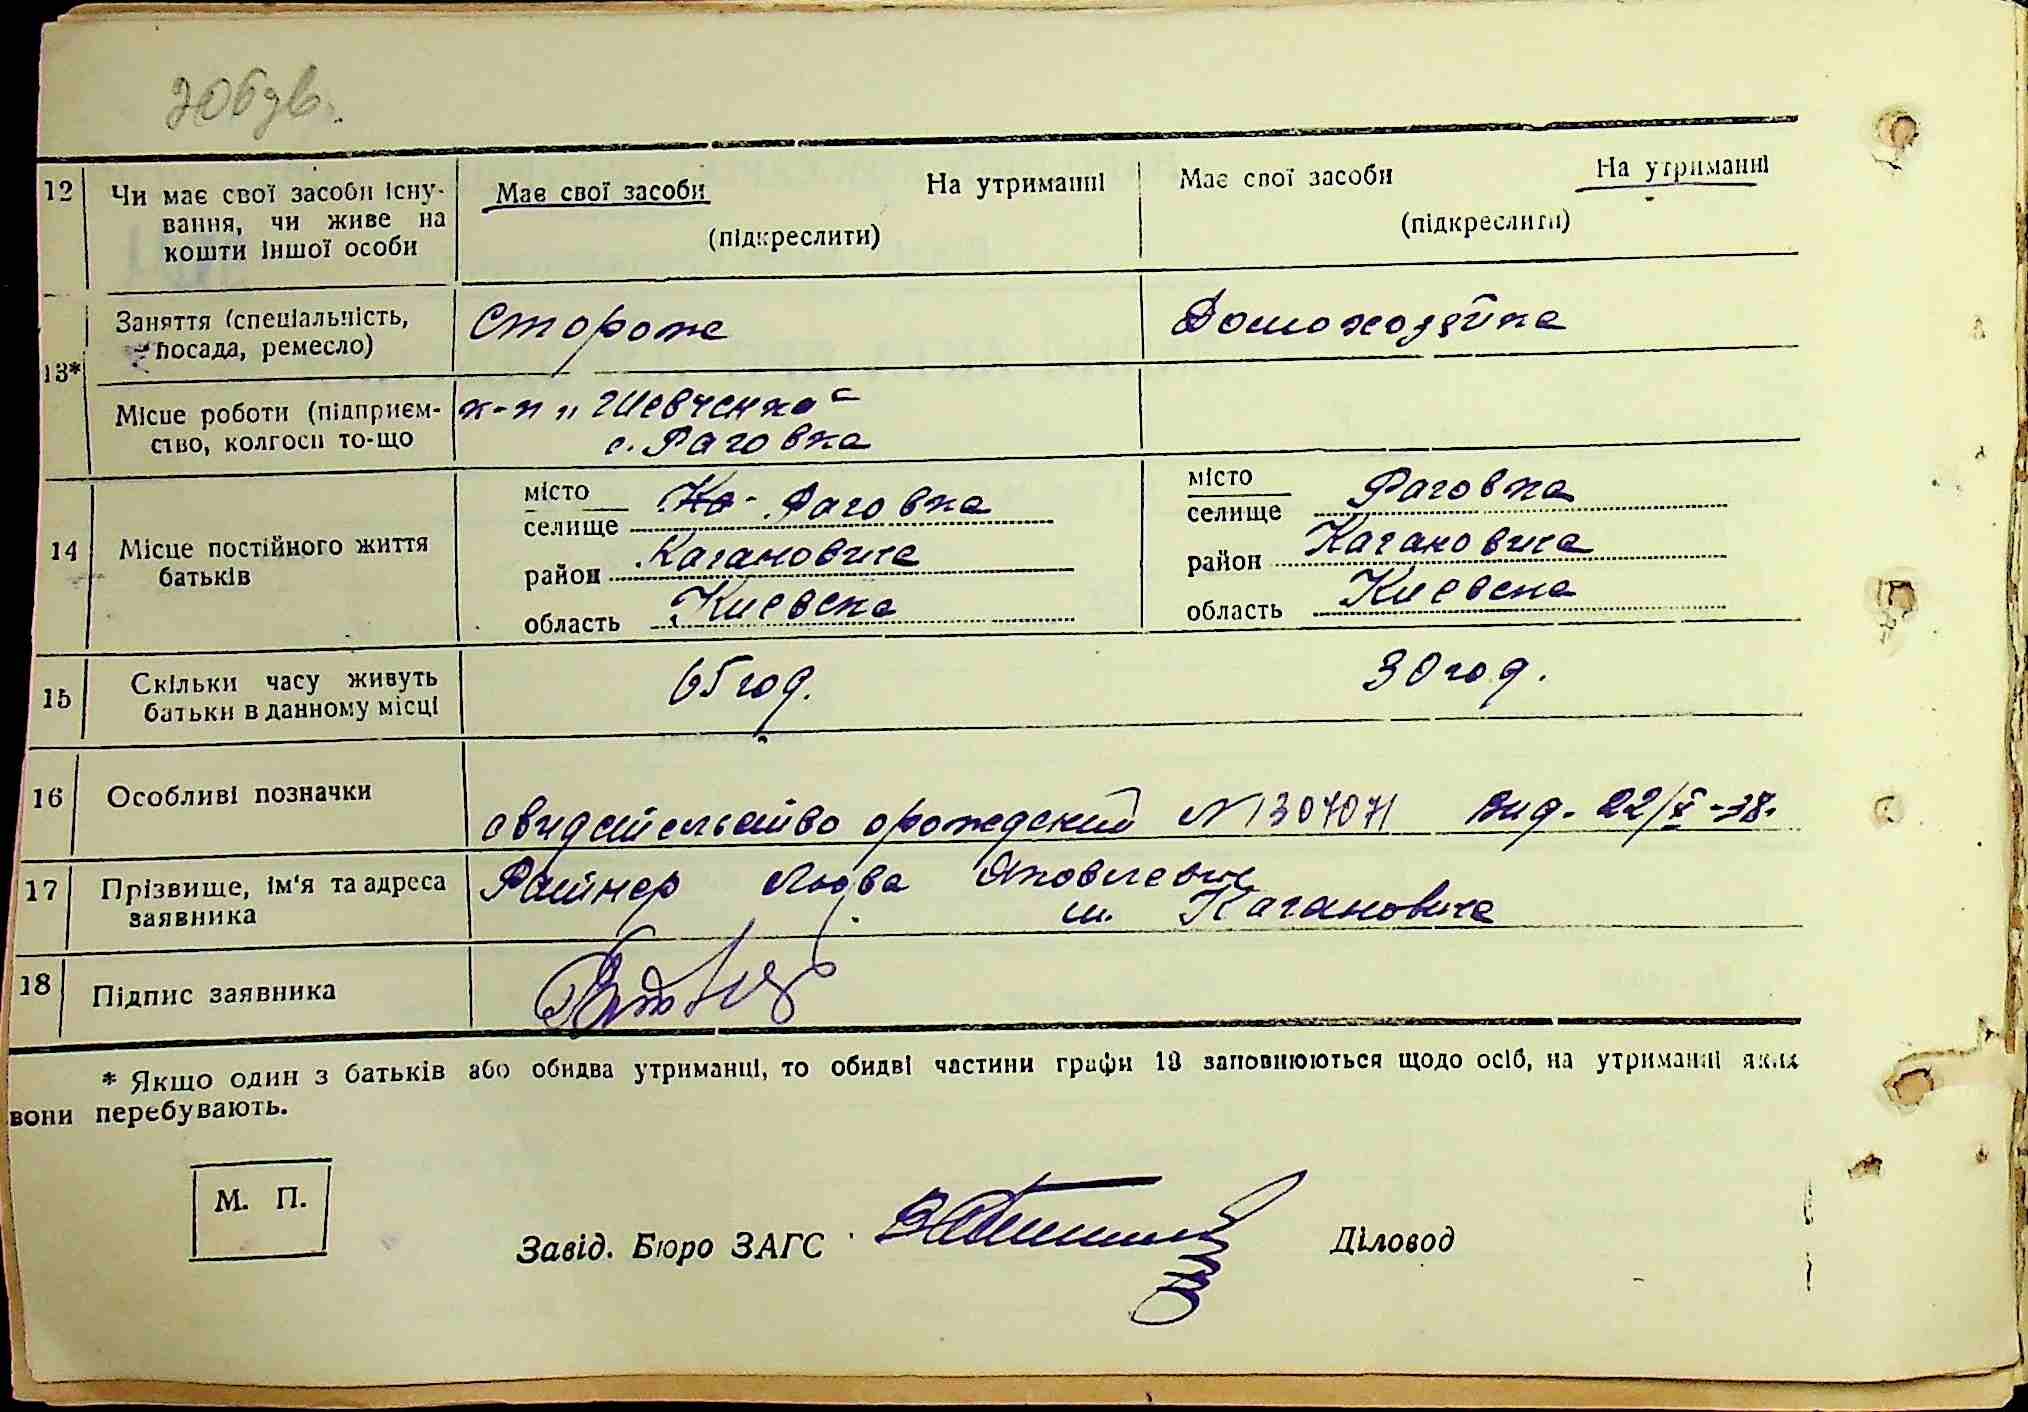 12
Чи має свої засоби існу-
вання, чи живе на
кошти іншої особи
Має свої засоби
На утриманні
(підкреслити)
Має свої засоби
На утриманні
(підкреслити)
13*
Заняття (спеціальність,
посада, ремесло)
Стороже
Домохозяйка
Місце роботи (підприєм-
ство, колгосп то-що
к-п „Шевченка“
с. Раговка
14
Місце постійного життя
батьків
місто
селище Раговка
район Кагановича
область Киевска
місто
селище Раговка
район Кагановича
область Киевска
15
Скільки часу живуть
батьки в данному місці
65 год.
30 год.
16
Особливі позначки
свидетельство орождений N 1307071 вид. 22/X-38.
17
Прізвище, ім'я та адреса
заявника
Райнер Люба Яковлевне
м. Кагановича
18
Підпис заявника
* Якщо один з батьків або обидва утриманці, то обидві частини графи 13 заповнюються щодо осіб, на утриманні яких
вони перебувають.
М. П.
Завід. Бюро ЗАГС
Діловод